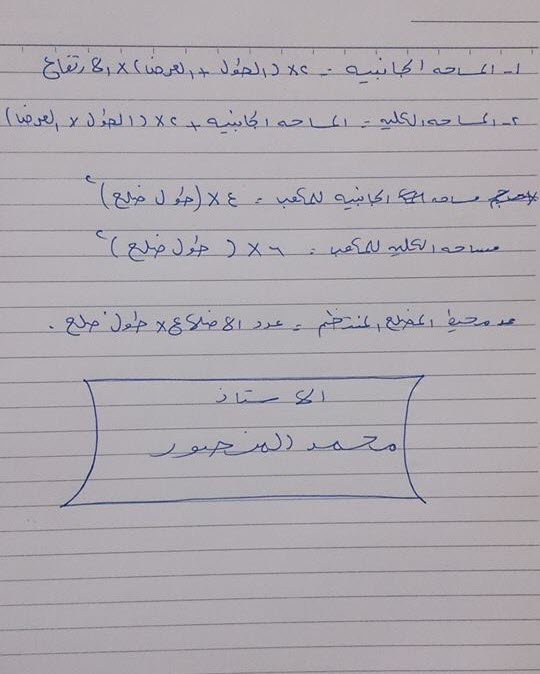 ١- المساحه الجانبيه = ٢×(الطول + العرض)× الارتفاع
٢- المساحه الكليه = المساحه الجانبيه + ٢×(الطول × العرض)
مساحه الجانبيه للمكعب = ٤×(طول ضلع)٢
مساحه الكليه للمكعب = ٦×(طول ضلع)٢
محيط المضلع المنتظم = عدد الاضلاع × طول ضلع .
الاستاذ
محمد المنصور